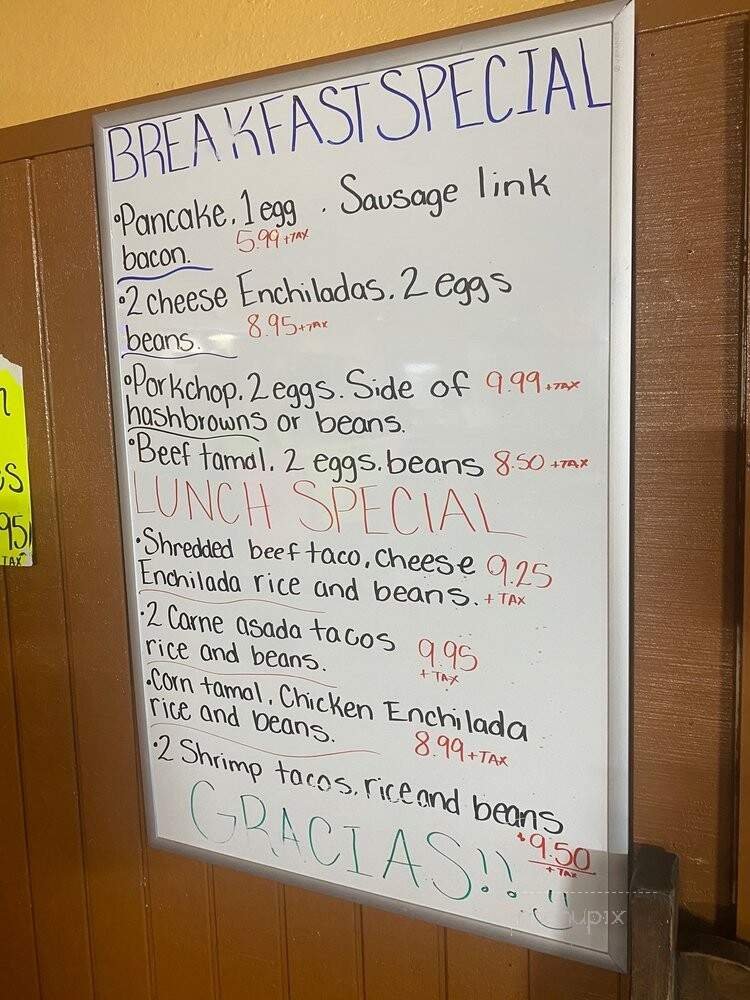 BREAKFAST SPECIAL
•Pancake. 1 egg . Sausage link
bacon. 5.99 +TAX
•2 cheese Enchiladas. 2 eggs
beans. 8.95 +TAX
•Porkchop. 2 eggs. Side of 9.99 +TAX
hashbrowns or beans.
•Beef tamal. 2 eggs. beans 8.50 +TAX
LUNCH SPECIAL
•Shredded beef taco, cheese 9.25
Enchilada rice and beans. + TAX
•2 Carne asada tacos 9.95
rice and beans. + TAX
•Corn tamal. Chicken Enchilada
rice and beans. 8.99 +TAX
•2 Shrimp tacos. rice and beans
$9.50
+ TAX
GRACIAS!! :)
95
TAX